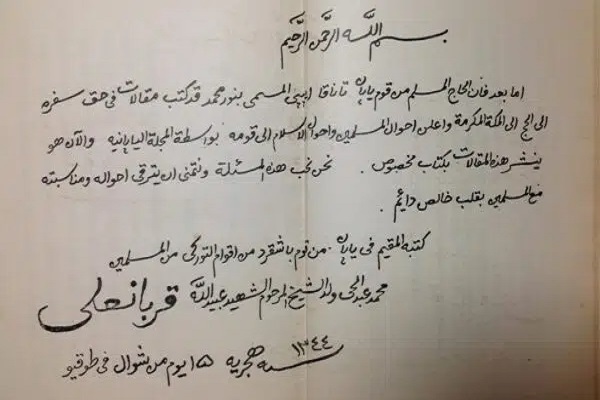 بسم اللّه الرحمن الرحيم
اما بعد فان الحاج المسلم من قوم ياپان تاناقا ايپى المسمى بنور محمد قد كتب مقالات فى حق سفره
الى الحج الى المكة المكرمة واعلن احوال المسلمين واحوال الاسلام الى قومه بواسطة المجلة اليابانيه والآن هو
ينشر هذه المقالات بكتاب مخصوص . نحن نحب هذه المسئلة ونتمنى ان يترقى احواله ومناسبته
مع المسلمين بقلب خالص دائم .
كتبه المقيم فى ياپان . من قوم باشقرد من اقوام التوركى من المسلمين
محمد عبدالحى ولد الشيخ المرحوم الشهيد عبيد اللّه قربانعلى
١٣٤٤ سنه هجريه ١٥ يوم من شوال فى طوقيو